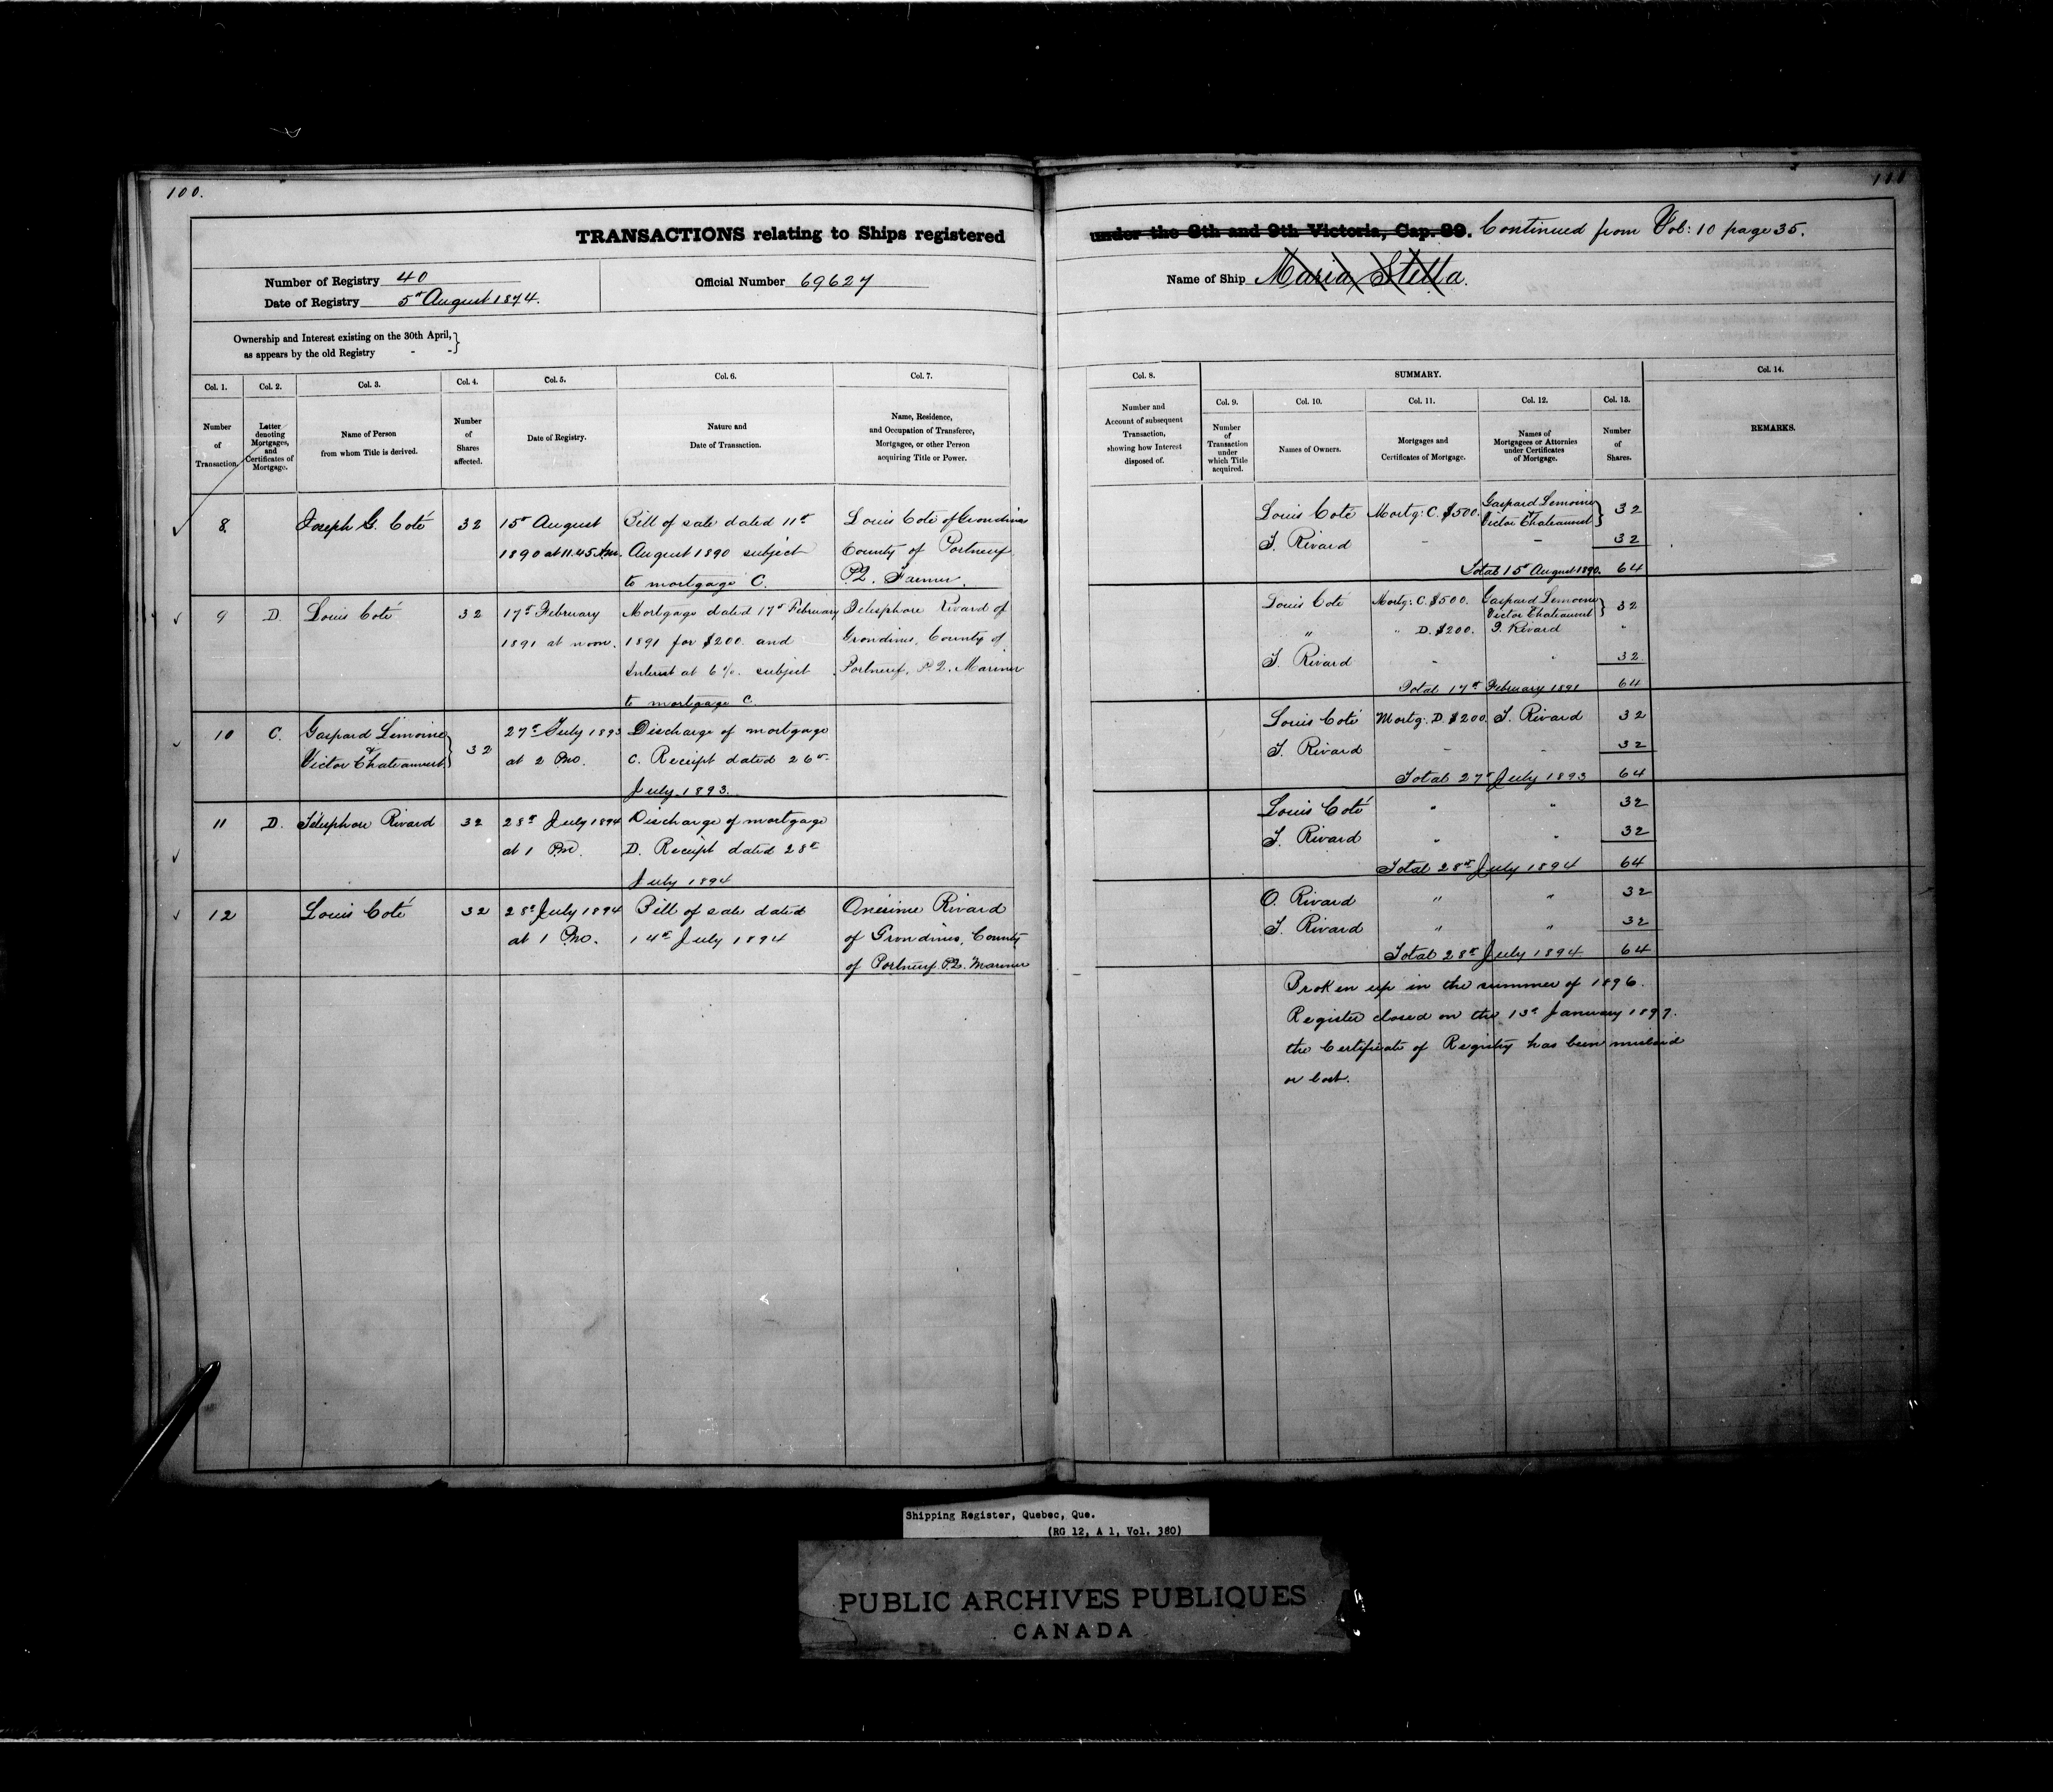 100.
100
TRANSACTIONS relating to Ships registered
under the 8th and 9th Victoria, Cap. 89. Continued from Vol: 10 page 35.
Number of Registry 40
Date of Registry 5th August 1874.
Official Number 69627
Name of Ship Maria Stella.
Ownership and Interest existing on the 30th April,
as appears by the old Registry - -}
Col. 1.
Number
of
Transaction.
Col. 2.
Letter
denoting
Mortgages,
and
Certificates of
Mortgage.
Col. 3.
Name of Person
from whom Title is derived.
Col. 4.
Number
of
Shares
affected.
Col. 5.
Date of Registry.
Col. 6.
Nature and
Date of Transaction.
Col. 7.
Name, Residence,
and Occupation of Transferee,
Mortgagee, or other Person
acquiring Title or Power.
Col. 8.
Number and
Account of subsequent
Transaction,
showing how Interest
disposed of.
SUMMARY.
Col. 9.
Number
of
Transaction
under
which Title
acquired.
Col. 10.
Names of Owners.
Col. 11.
Mortgages and
Certificates of Mortgage.
Col. 12.
Names of
Mortgagees or Attornies
under Certificates
of Mortgage.
Col. 13.
Number
of
Shares.
Col. 14.
REMARKS.
8. Joseph G. Coté 32 15th August Bill of sale dated 11th Louis Coté of Grondines
1890 at 11.45 Am. August 1890 subject County of Portneuf
to mortgage C. P.Q. Farmer.
9 D. Louis Coté 32 17th February Mortgage dated 17th February Telesphore Rivard of
1891 at noon. 1891 for $200. and Grondines, County of
Interest at 6%. subject Portneuf, P.Q. Mariner
to mortgage C.
10 C. Gaspard Lemoine 27th July 1893 Discharge of mortgage
& } 32
Victor Chateauvert at 2 Pm. C. Receipt dated 26th
July 1893.
11 D. Télesphore Rivard 32 28th July 1894 Discharge of mortgage
at 1 Pm. D. Receipt dated 28th
July 1894
12 Louis Coté 32 28th July 1894 Bill of sale dated Onésime Rivard
at 1 Pm. 14th July 1894 of Grondines, County
of Portneuf P.Q. Mariner
Louis Coté Mortg: C. $500. Gaspard Lemoine & } 32
Victor Chateauvert
T. Rivard - - 32
Total 15th August 1890. 64
Louis Coté Mortg: C. $500. Gaspard Lemoine } 32
Victor Chateauvert
" " D. $200. T. Rivard "
T. Rivard " " 32
Total 17th February 1891 64
Louis Coté Mortg: D. $200. T. Rivard 32
T. Rivard - - 32
Total 27th July 1893 64
Louis Coté " " 32
T. Rivard " " 32
Total 28th July 1894 64
O. Rivard " " 32
T. Rivard " " 32
Total 28th July 1894 64
Broken up in the summer of 1896.
Register closed on the 13th January 1897.
the Certificate of Registry has been mislaid
or lost.
Shipping Register, Quebec, Que.
(RG 12, A 1, Vol. 380)
PUBLIC ARCHIVES PUBLIQUES
CANADA